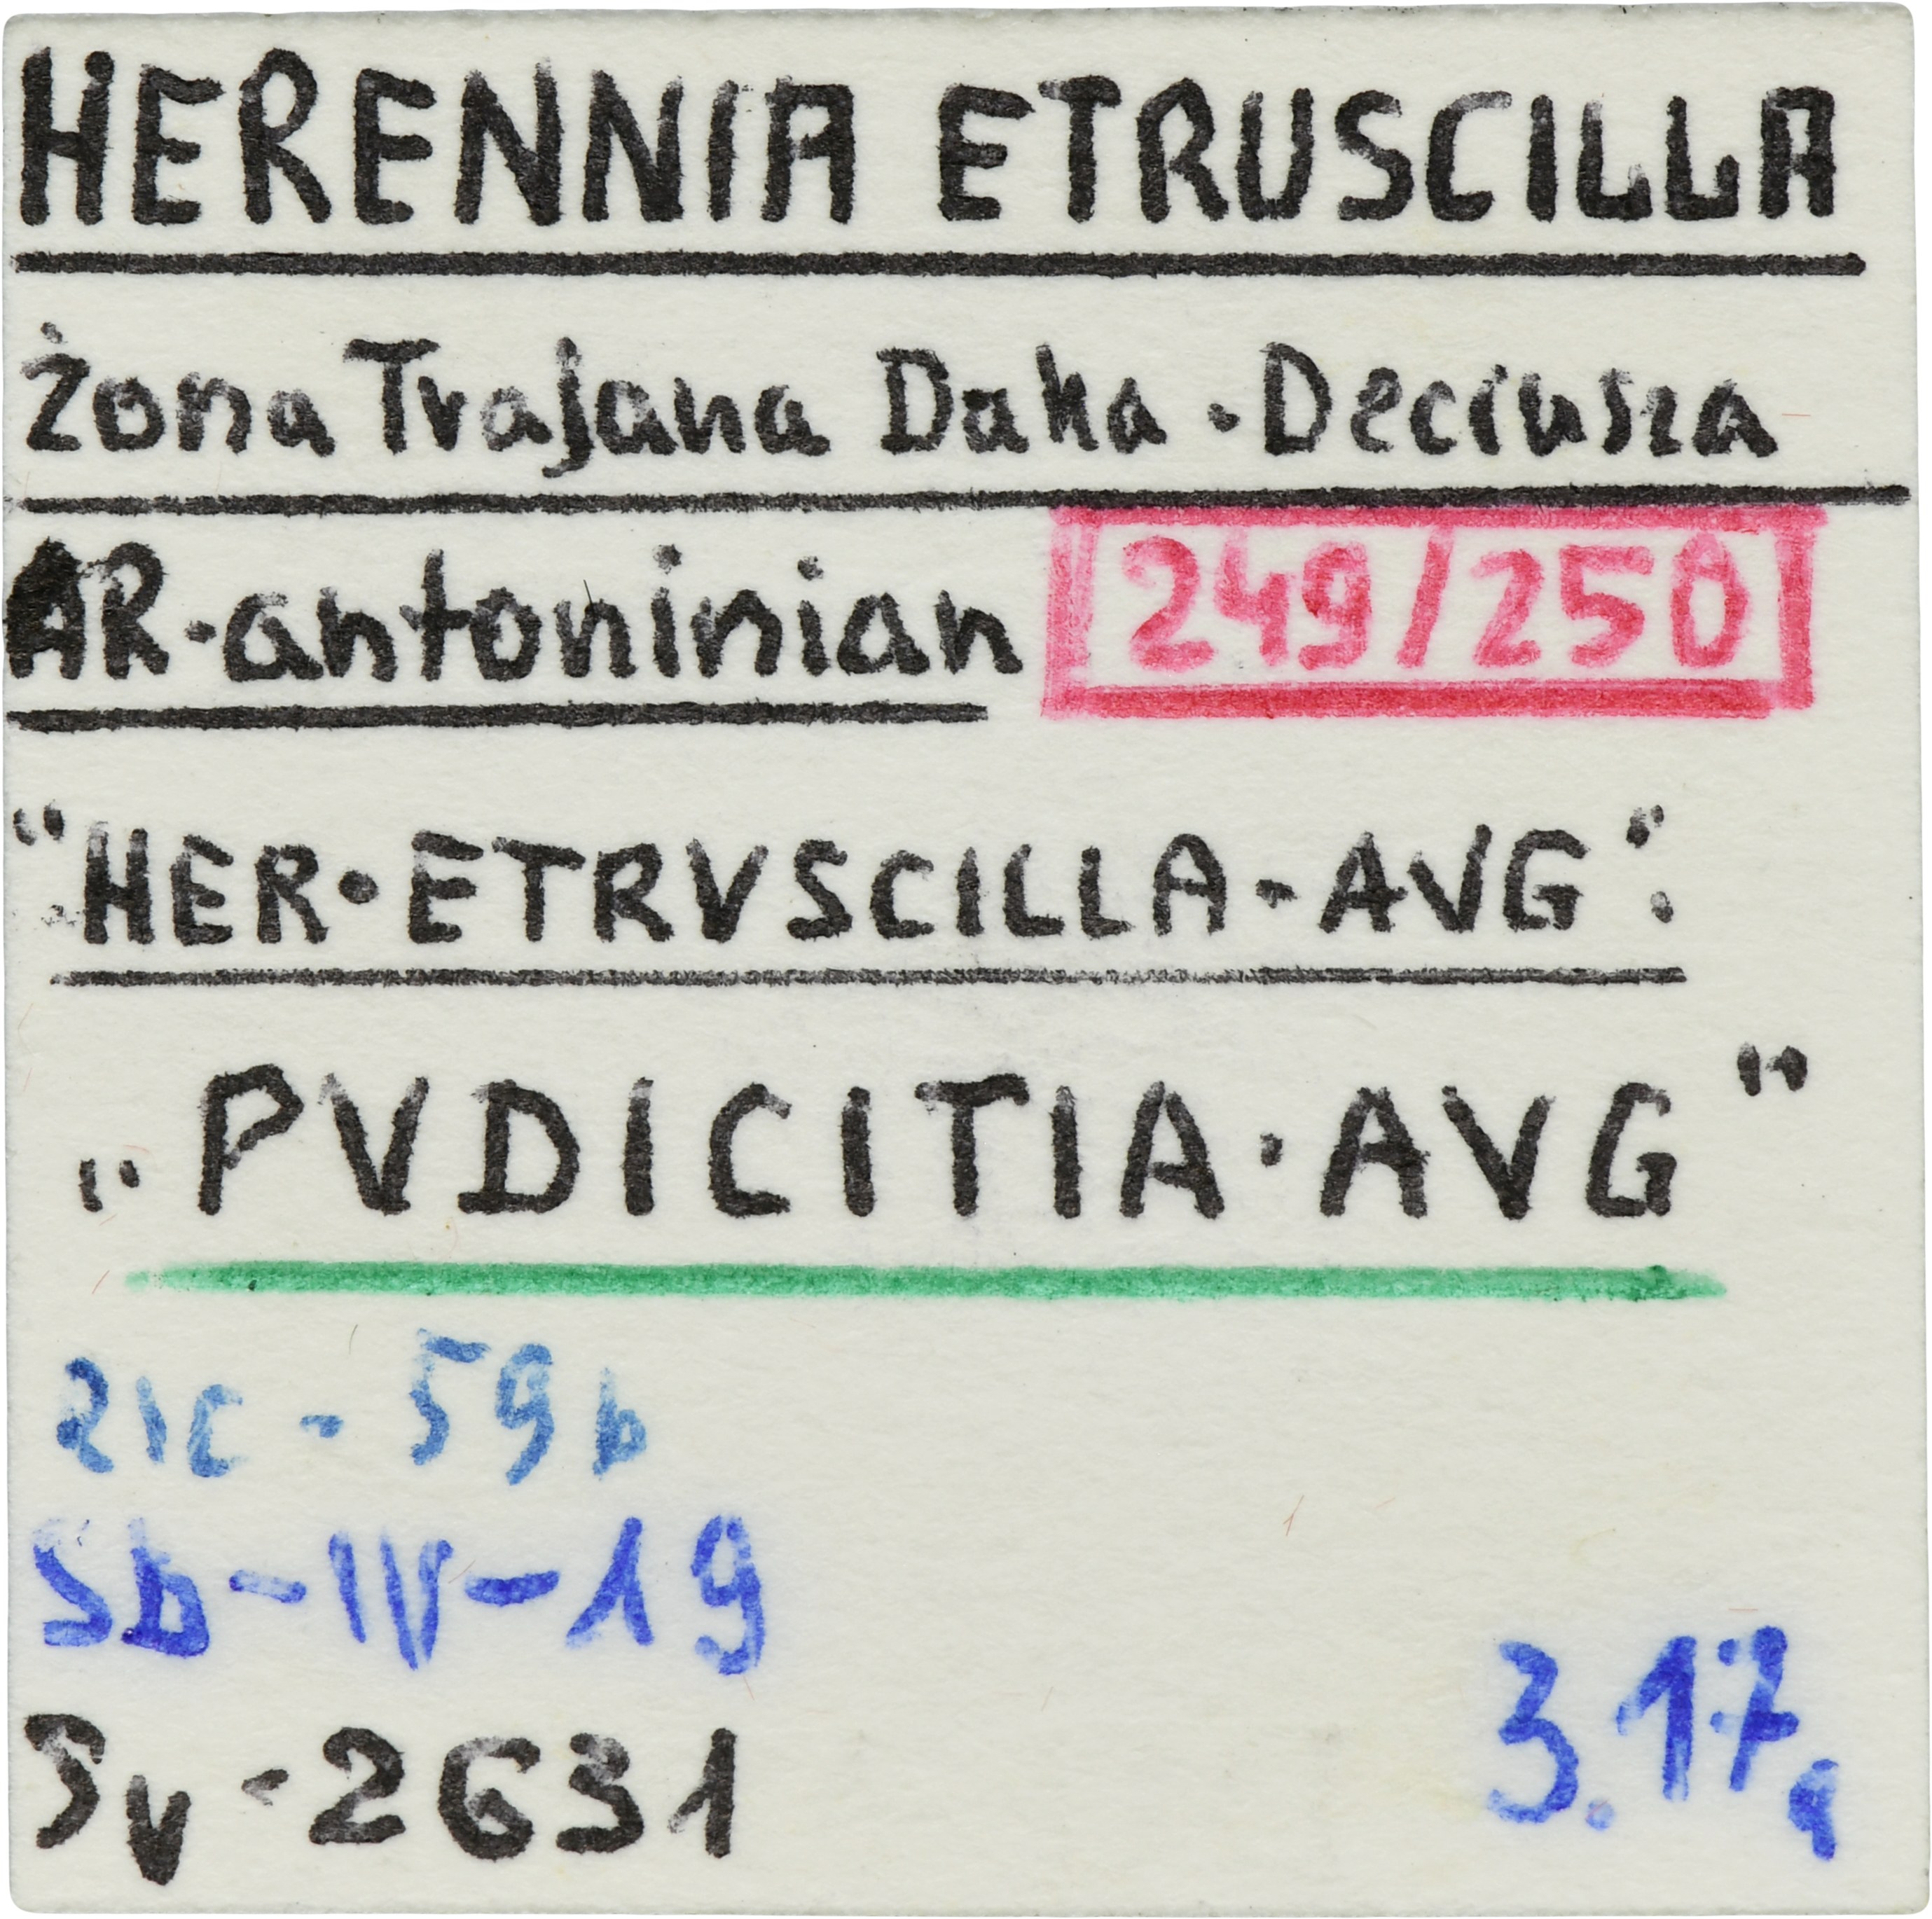 HERENNIA ETRUSCILLA
Żona Trajana Daka · Deciusza
AR-antoninian 249/250
"HER·ETRVSCILLA-AVG":
„PVDICITIA·AVG"
RIC - 59b
Sb-IV-19
Sv-2631
3.17a